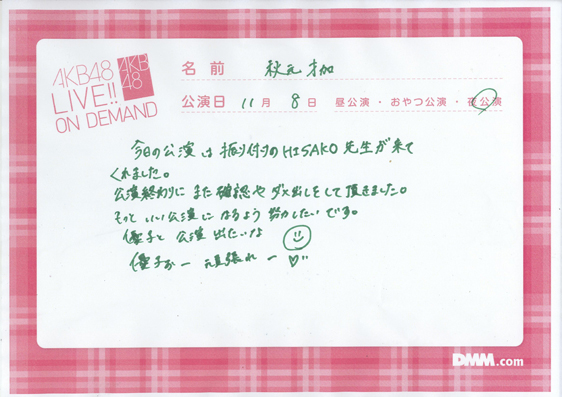 AKB48
LIVE!!
ON DEMAND
AKB
48
名前 秋元才加
公演日 11月8日 昼公演・おやつ公演・夜公演
今日の公演は振り付けのHISAKO先生が来て
くれました。
公演終わりにまた確認やダメ出しをして頂きました。
もっといい公演になるよう努力したいです。
優子と公演出たいな
優子おー頑張れー♡
DMM.com